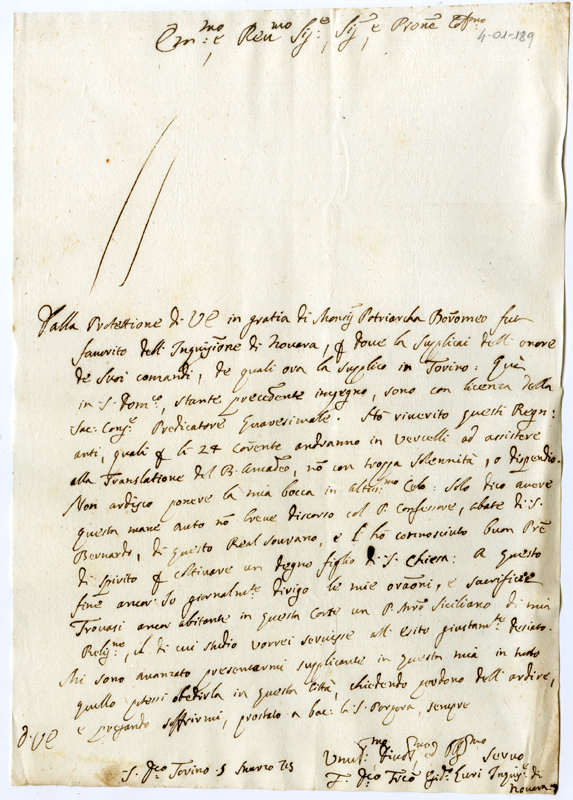 Em:mo e Reu:mo Sig:e, Sig:e, e Prone Col:mo
4-01-189
Dalla Protettione di VE in gratia di Monsig Patriarcha Boromeo fui
fauorito dell'Inquisizione di Nouara, doue la supplicai dell'onore
de Suoi comandi, de quali ora la supplico in Torino: Quà
in S. Dom:co, stante precedente impegno, sono con licenza della
Sac: Cong:e Predicatore Quaresimale. Hò riuerito questi Regn:
anti, quali li 24 Corente andranno in Vercelli ad assistere
alla Translatione del B. Amadeo, nõ con troppa solennità, o dispendio.
Non ardisco ponere la mia bocca in Colo: Solo dico auere
questa mane auto nõ breue discorso col P. Confessore, abate di S.
Bernardo, di questo Real Sourano, e l'hò connosciuto buon Prẽ
di spirito coltiuare un degno figlio di S. Chiesa: A questo
fine ancor Io giornalm:te dirigo le mie oraõni, e sacrificii
Trouasi ancor abitante in questa Corte un P. Mrõ Siciliano di mia
Relig:ne, il di cui studio vorrei seruisse all'esito giustam:te desiato.
Mi sono auanzato presentarmi supplicante in questa mia in tutto
quello potessi obedirla in questa Città, chiedendo perdono dell'ardire,
e pregando soffrirmi, prostrato a bac: la S. Porpora, sempre
d. VE
Vmil:mo Diuot:mo Oss:mo seruo
S. Dco Torino 5 Marzo
F. Inquis:re di
Nouara